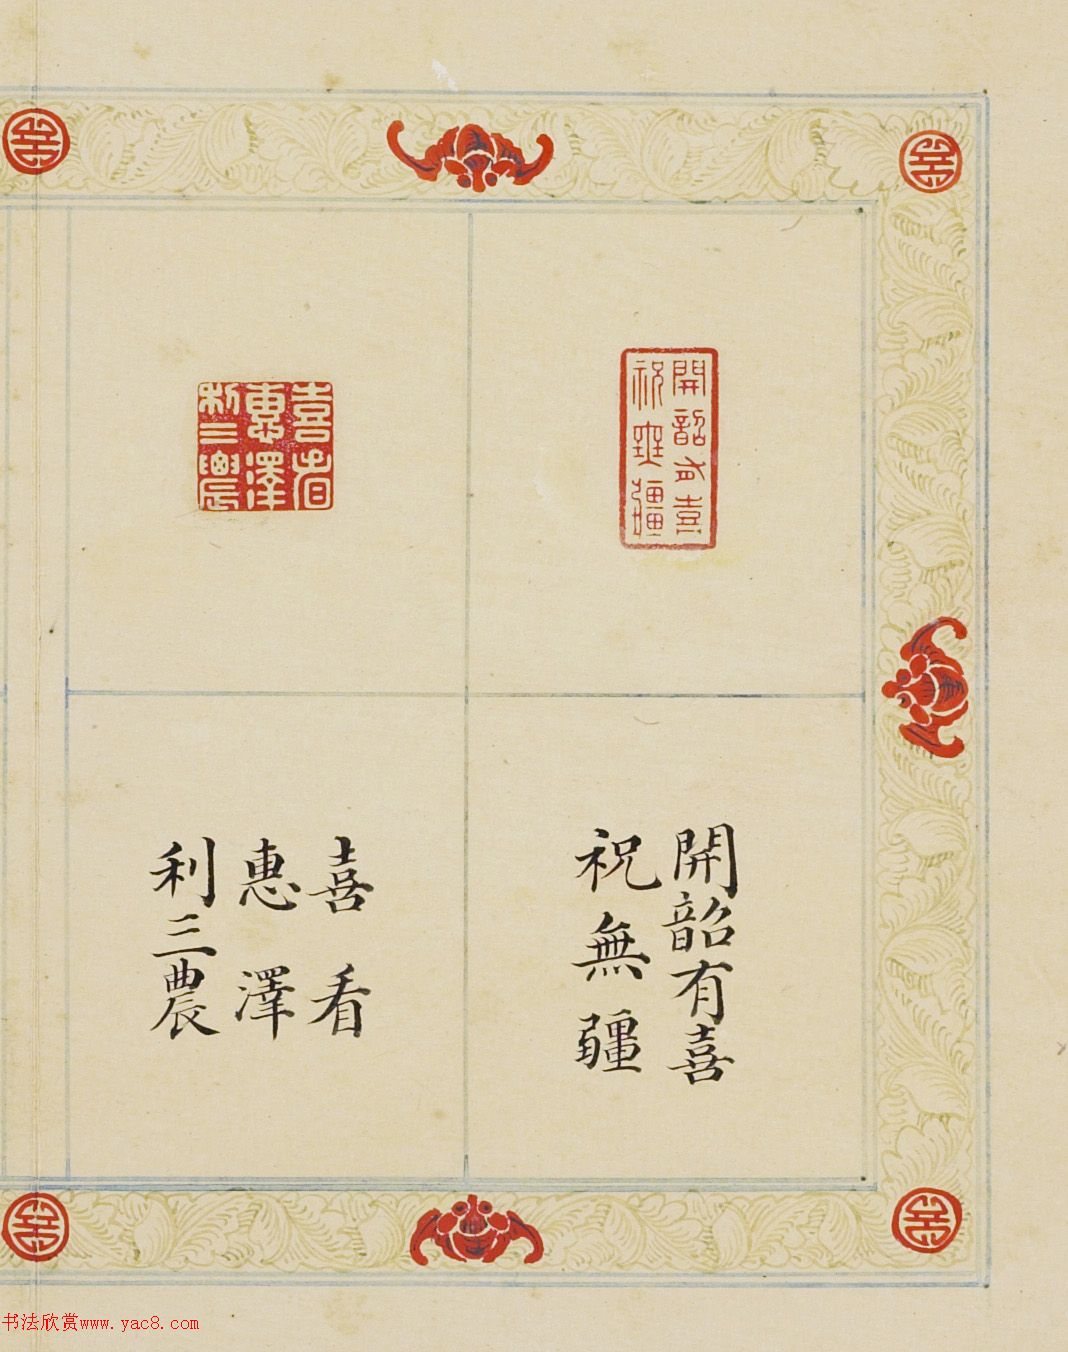 開韶有喜
祝無疆
喜看
惠澤
利三農
開韶有喜
祝無疆
喜看
惠澤
利三農
书法欣赏www.yac8.com